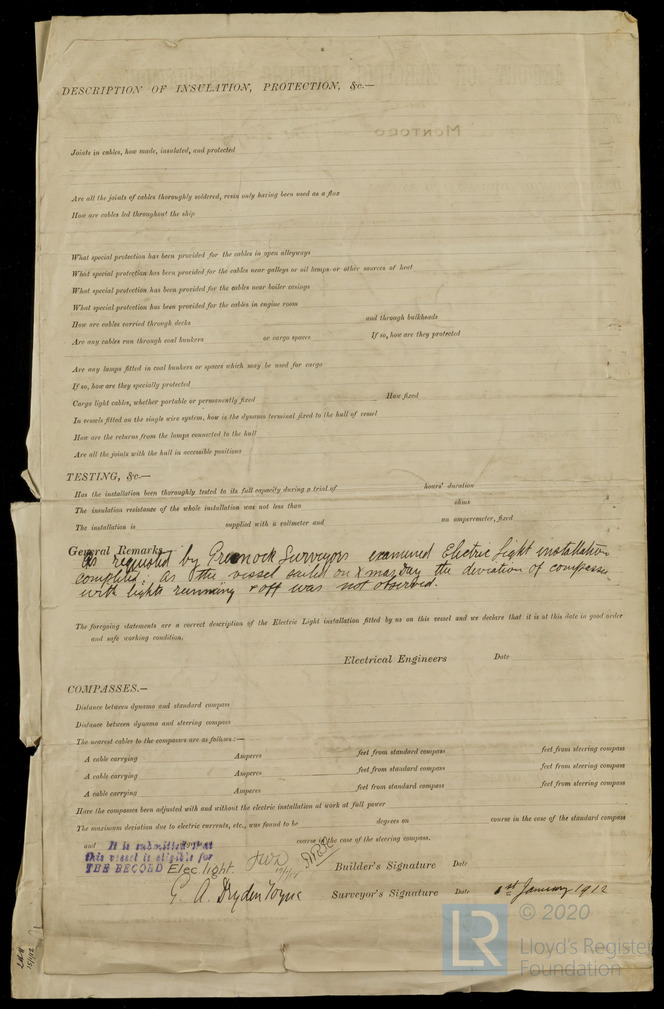 DESCRIPTION OF INSULATION, PROTECTION, &c.—
MONTORO
Joints in cables, how made, insulated, and protected
Are all the joints of cables thoroughly soldered, resin only having been used as a flux
How are cables led throughout the ship
What special protection has been provided for the cables in open alleyways
What special protection has been provided for the cables near galleys or oil lamps or other sources of heat
What special protection has been provided for the cables near boiler casings
What special protection has been provided for the cables in engine room
How are cables carried through decks and through bulkheads
Are any cables run through coal bunkers or cargo spaces If so, how are they protected
Are any lamps fitted in coal bunkers or spaces which may be used for cargo
If so, how are they specially protected
Cargo light cables, whether portable or permanently fixed How fixed
In vessels fitted on the single wire system, how is the dynamo terminal fixed to the hull of vessel
How are the returns from the lamps connected to the hull
Are all the joints with the hull in accessible positions
TESTING, &c.—
Has the installation been thoroughly tested to its full capacity during a trial of hours' duration
The insulation resistance of the whole installation was not less than ohms
The installation is supplied with a voltmeter and an amperemeter, fixed
General Remarks
As requested by Greenock Surveyors examined Electric Light installation
completed, as the vessel sailed on Xmas day the deviation of compasses
with lights running & off was not observed.
The foregoing statements are a correct description of the Electric Light installation fitted by us on this vessel and we declare that it is at this date in good order
and safe working condition.
Electrical Engineers Date
COMPASSES.—
Distance between dynamo and standard compass
Distance between dynamo and steering compass
The nearest cables to the compasses are as follows:—
A cable carrying Amperes feet from standard compass feet from steering compass
A cable carrying Amperes feet from standard compass feet from steering compass
A cable carrying Amperes feet from standard compass feet from steering compass
Have the compasses been adjusted with and without the electric installation at work at full power
The maximum deviation due to electric currents, etc., was found to be degrees on course in the case of the standard compass
and course in the case of the steering compass.
It is submitted that
this vessel is eligible for
THE RECORD Elec. light.
Builder's Signature Date
Surveyor's Signature Date 1st January 1912
© 2020
LR
Lloyd's Register
Foundation